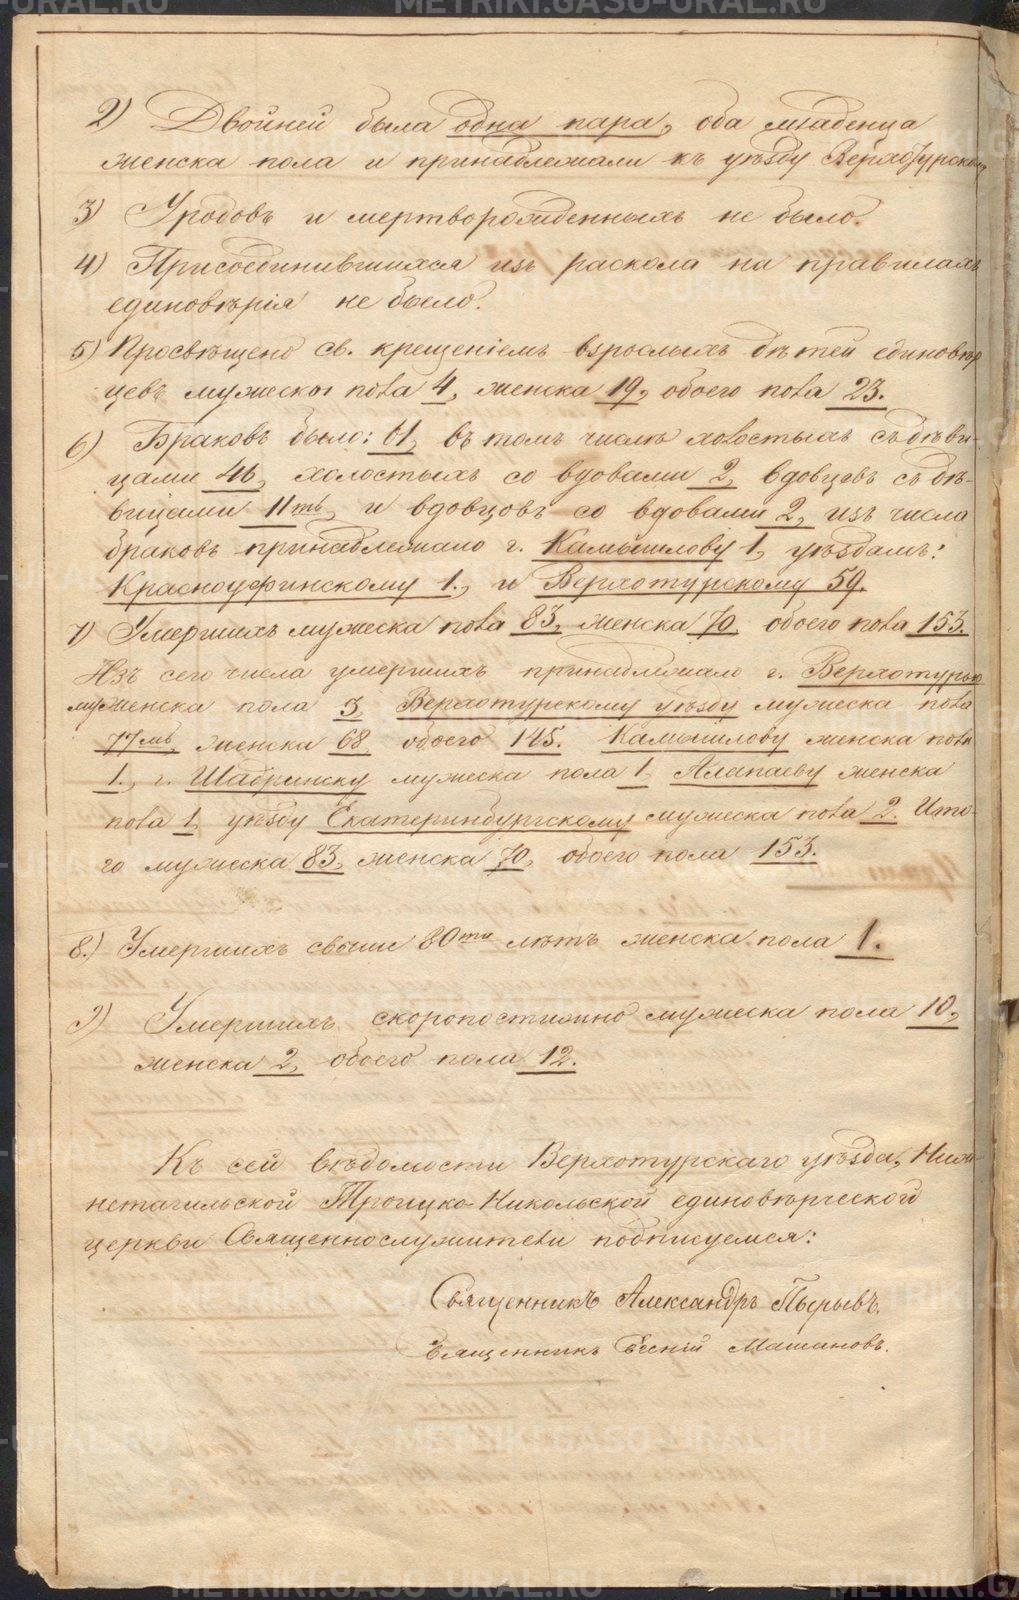 2) Двойней была одна пара, оба младенца
женска пола и принадлежали къ уѣзду Верхотурскому
3) Уродовъ и мертворожденныхъ не было.
4) Присоединившихся изъ раскола на правилахъ
единовѣрія не было.
5) Просвѣщено св. крещеніемъ взрослыхъ дѣтей единовѣр
цевъ мужеска пола 4, женска 19, обоего пола 23.
6) Браковъ было: 61, въ томъ числѣ холостыхъ съ дѣви-
цами 46, холостыхъ со вдовами 2, вдовцевъ съ дѣ-
вицами 11ть, и вдовцовъ со вдовами 2, изъ числа
браковъ принадлежало г. Камышлову 1, уѣздамъ:
Красноуфинскому 1., и Верхотурскому 59.
7) Умершихъ мужеска пола 83, женска 70, обоего пола 153.
Изъ сего числа умершихъ принадлежало г. Верхотурью
мужеска пола 3, Верхотурскому уѣзду мужеска пола
77мь, женска 68, обоего 145. Камышлову женска пола
1., г. Шадринску мужеска пола 1, Алапаеву женска
пола 1, уѣзду Екатеринбургскому мужеска пола 2. Ито-
го мужеска 83, женска 70, обоего пола 153.
8.) Умершихъ свыше 80ти лѣтъ женска пола 1.
9) Умершихъ скоропостижно мужеска пола 10,
женска 2, обоего пола 12.
Къ сей вѣдомости Верхотурскаго уѣзда, Ниж-
нетагильской Троицко-Никольской единовѣрческой
церкви Священнослужители подписуемся:
Священникъ Александръ Пырьевъ.
Священникъ Машановъ.
METRIKI.GASO-URAL.RU